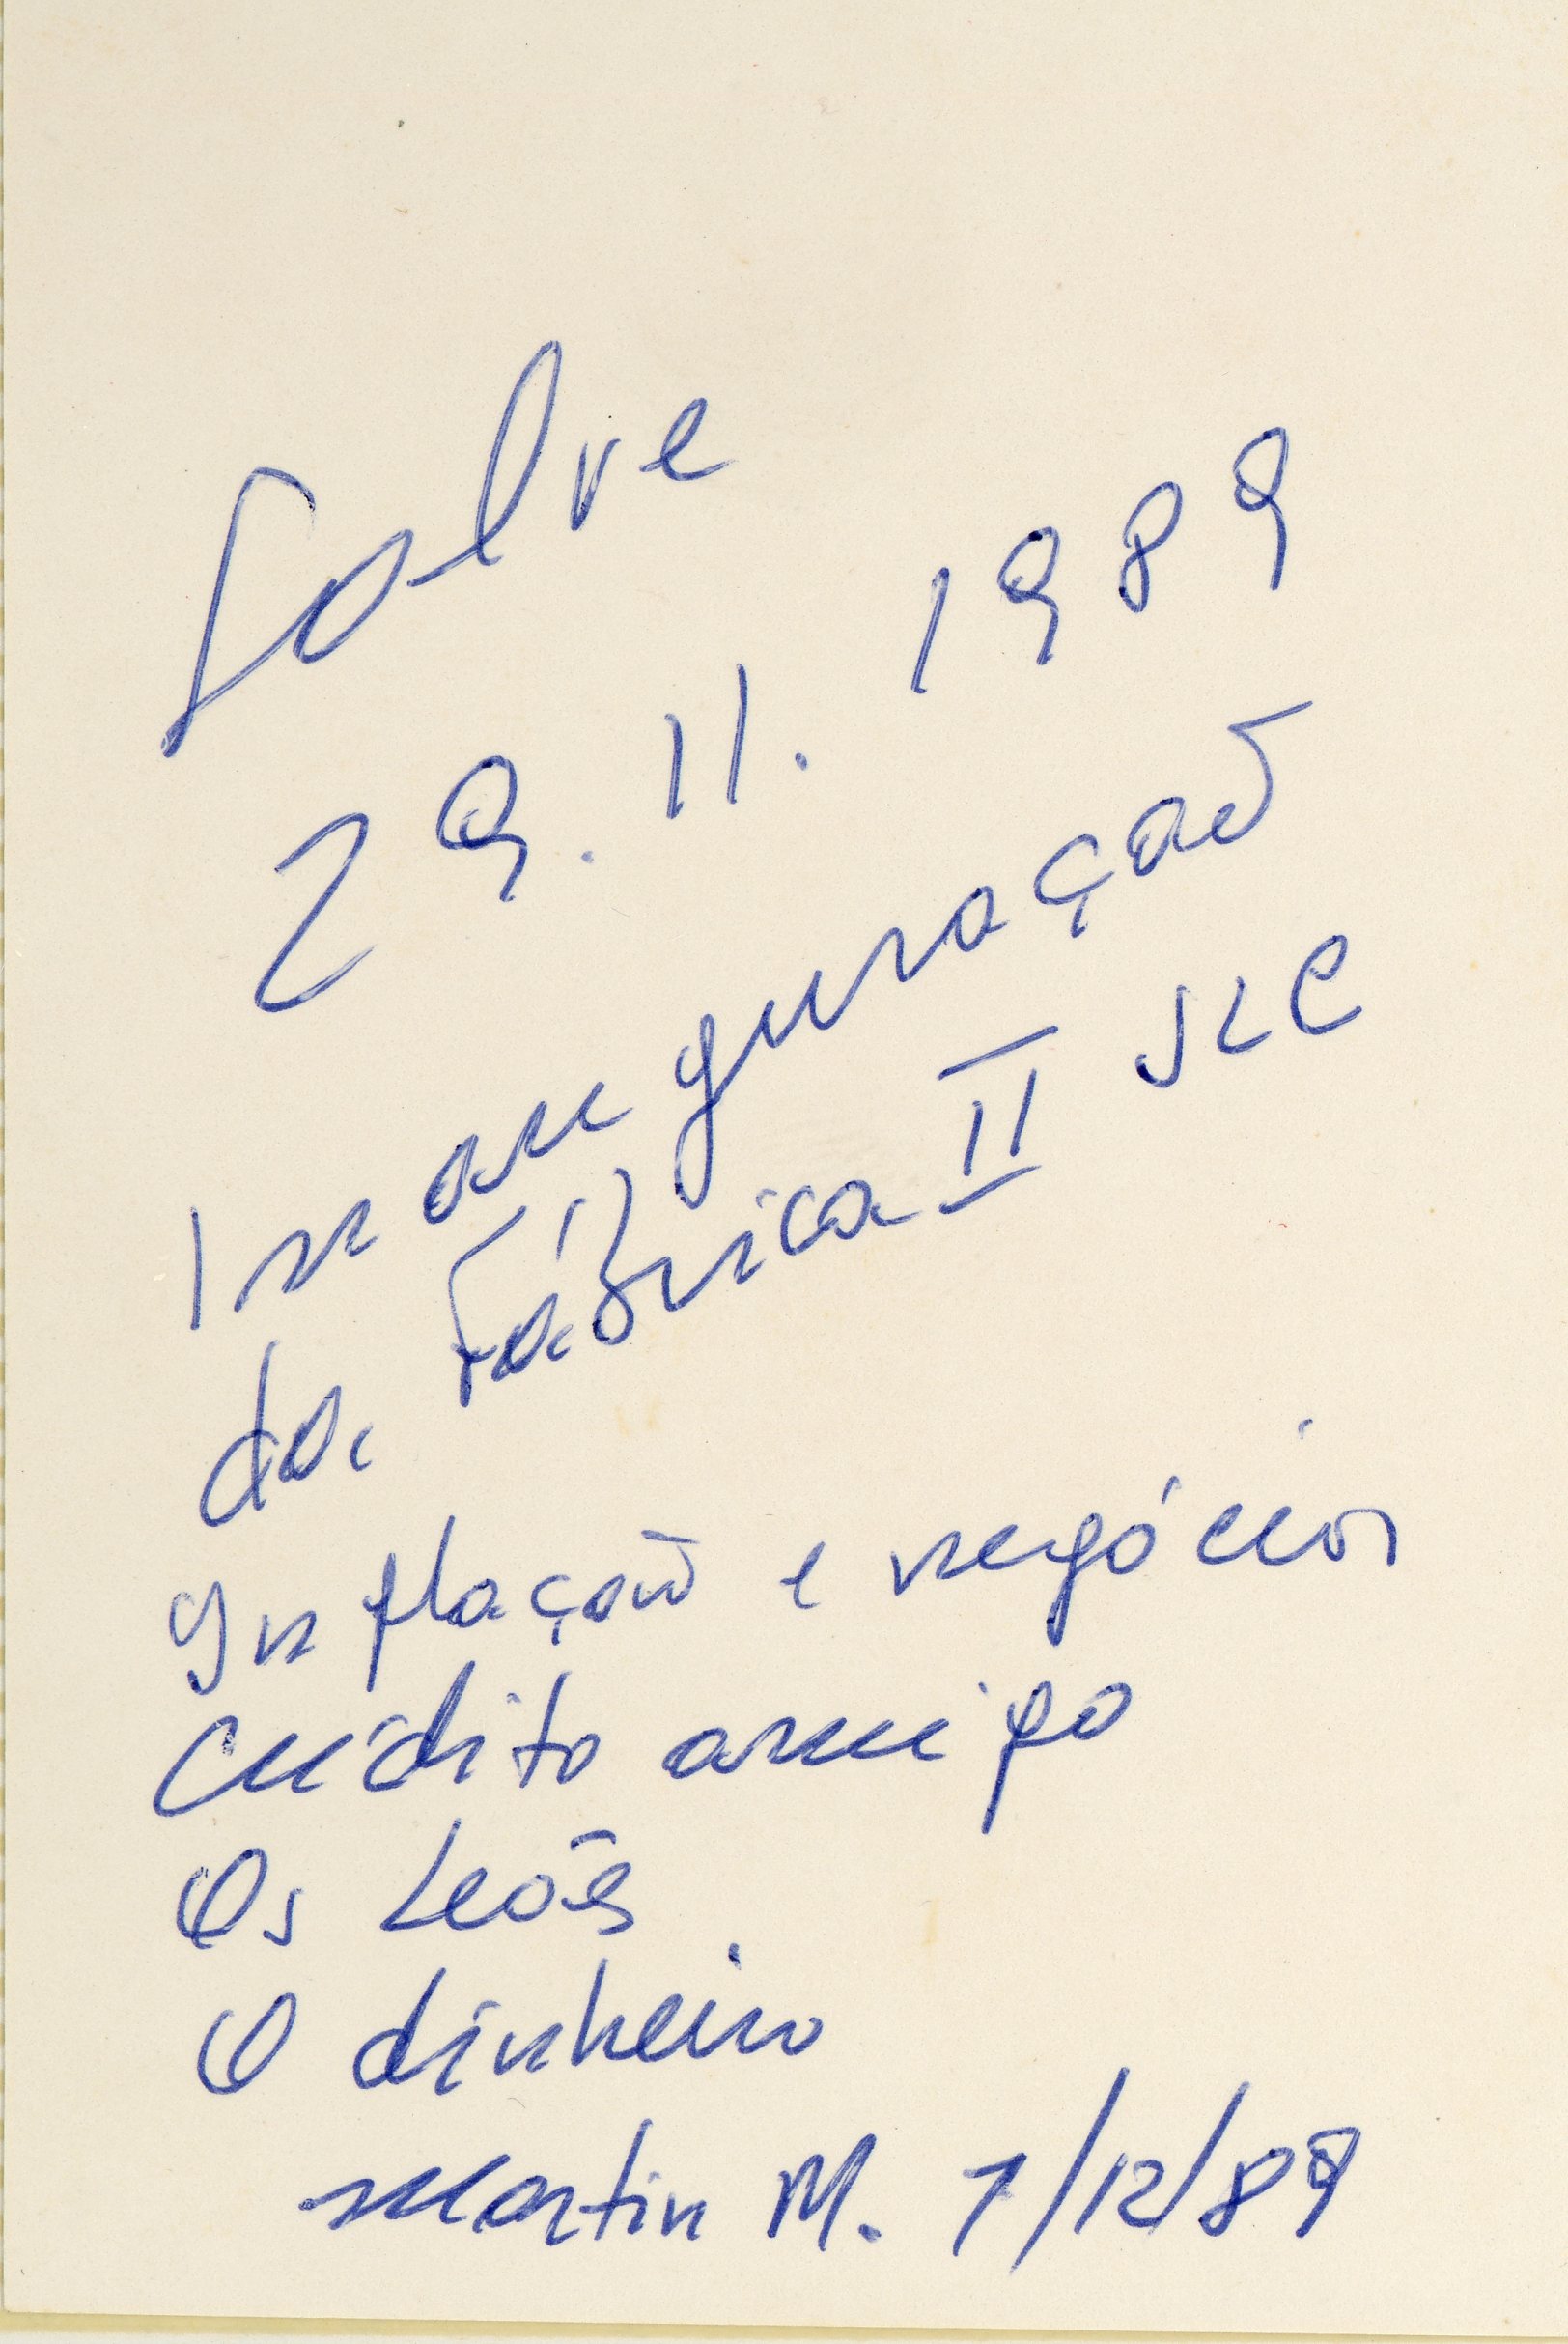 Salve
29.11.1989
Inauguração
da Fábrica II SLC
Inflação e negócios
Crédito amigo
Os Leões
O dinheiro
Martin M. 7/12/89